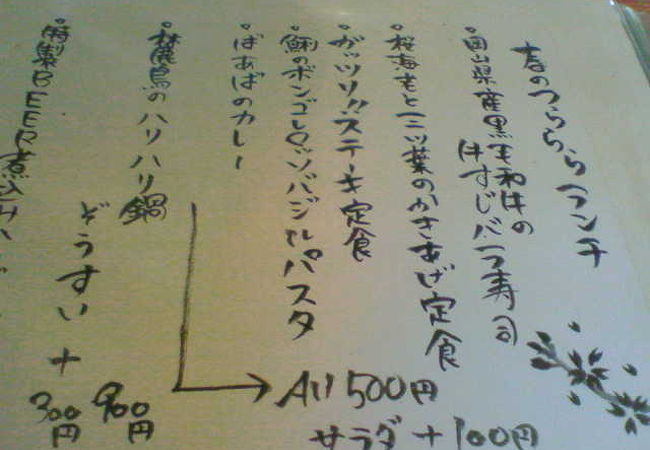 春のつららら ランチ
・岡山県産黒毛和牛の
牛すじバラ寿司
・桜海老と三ツ葉のかきあげ定食
・ガッツリ!!ステーキ定食
・鯏のボンゴレロッソバジルパスタ
・ばあばのカレー
All 500円
サラダ+100円
・林麓鳥のハリハリ鍋
900円
ぞうすい+
300円
・特製BEER煮込み